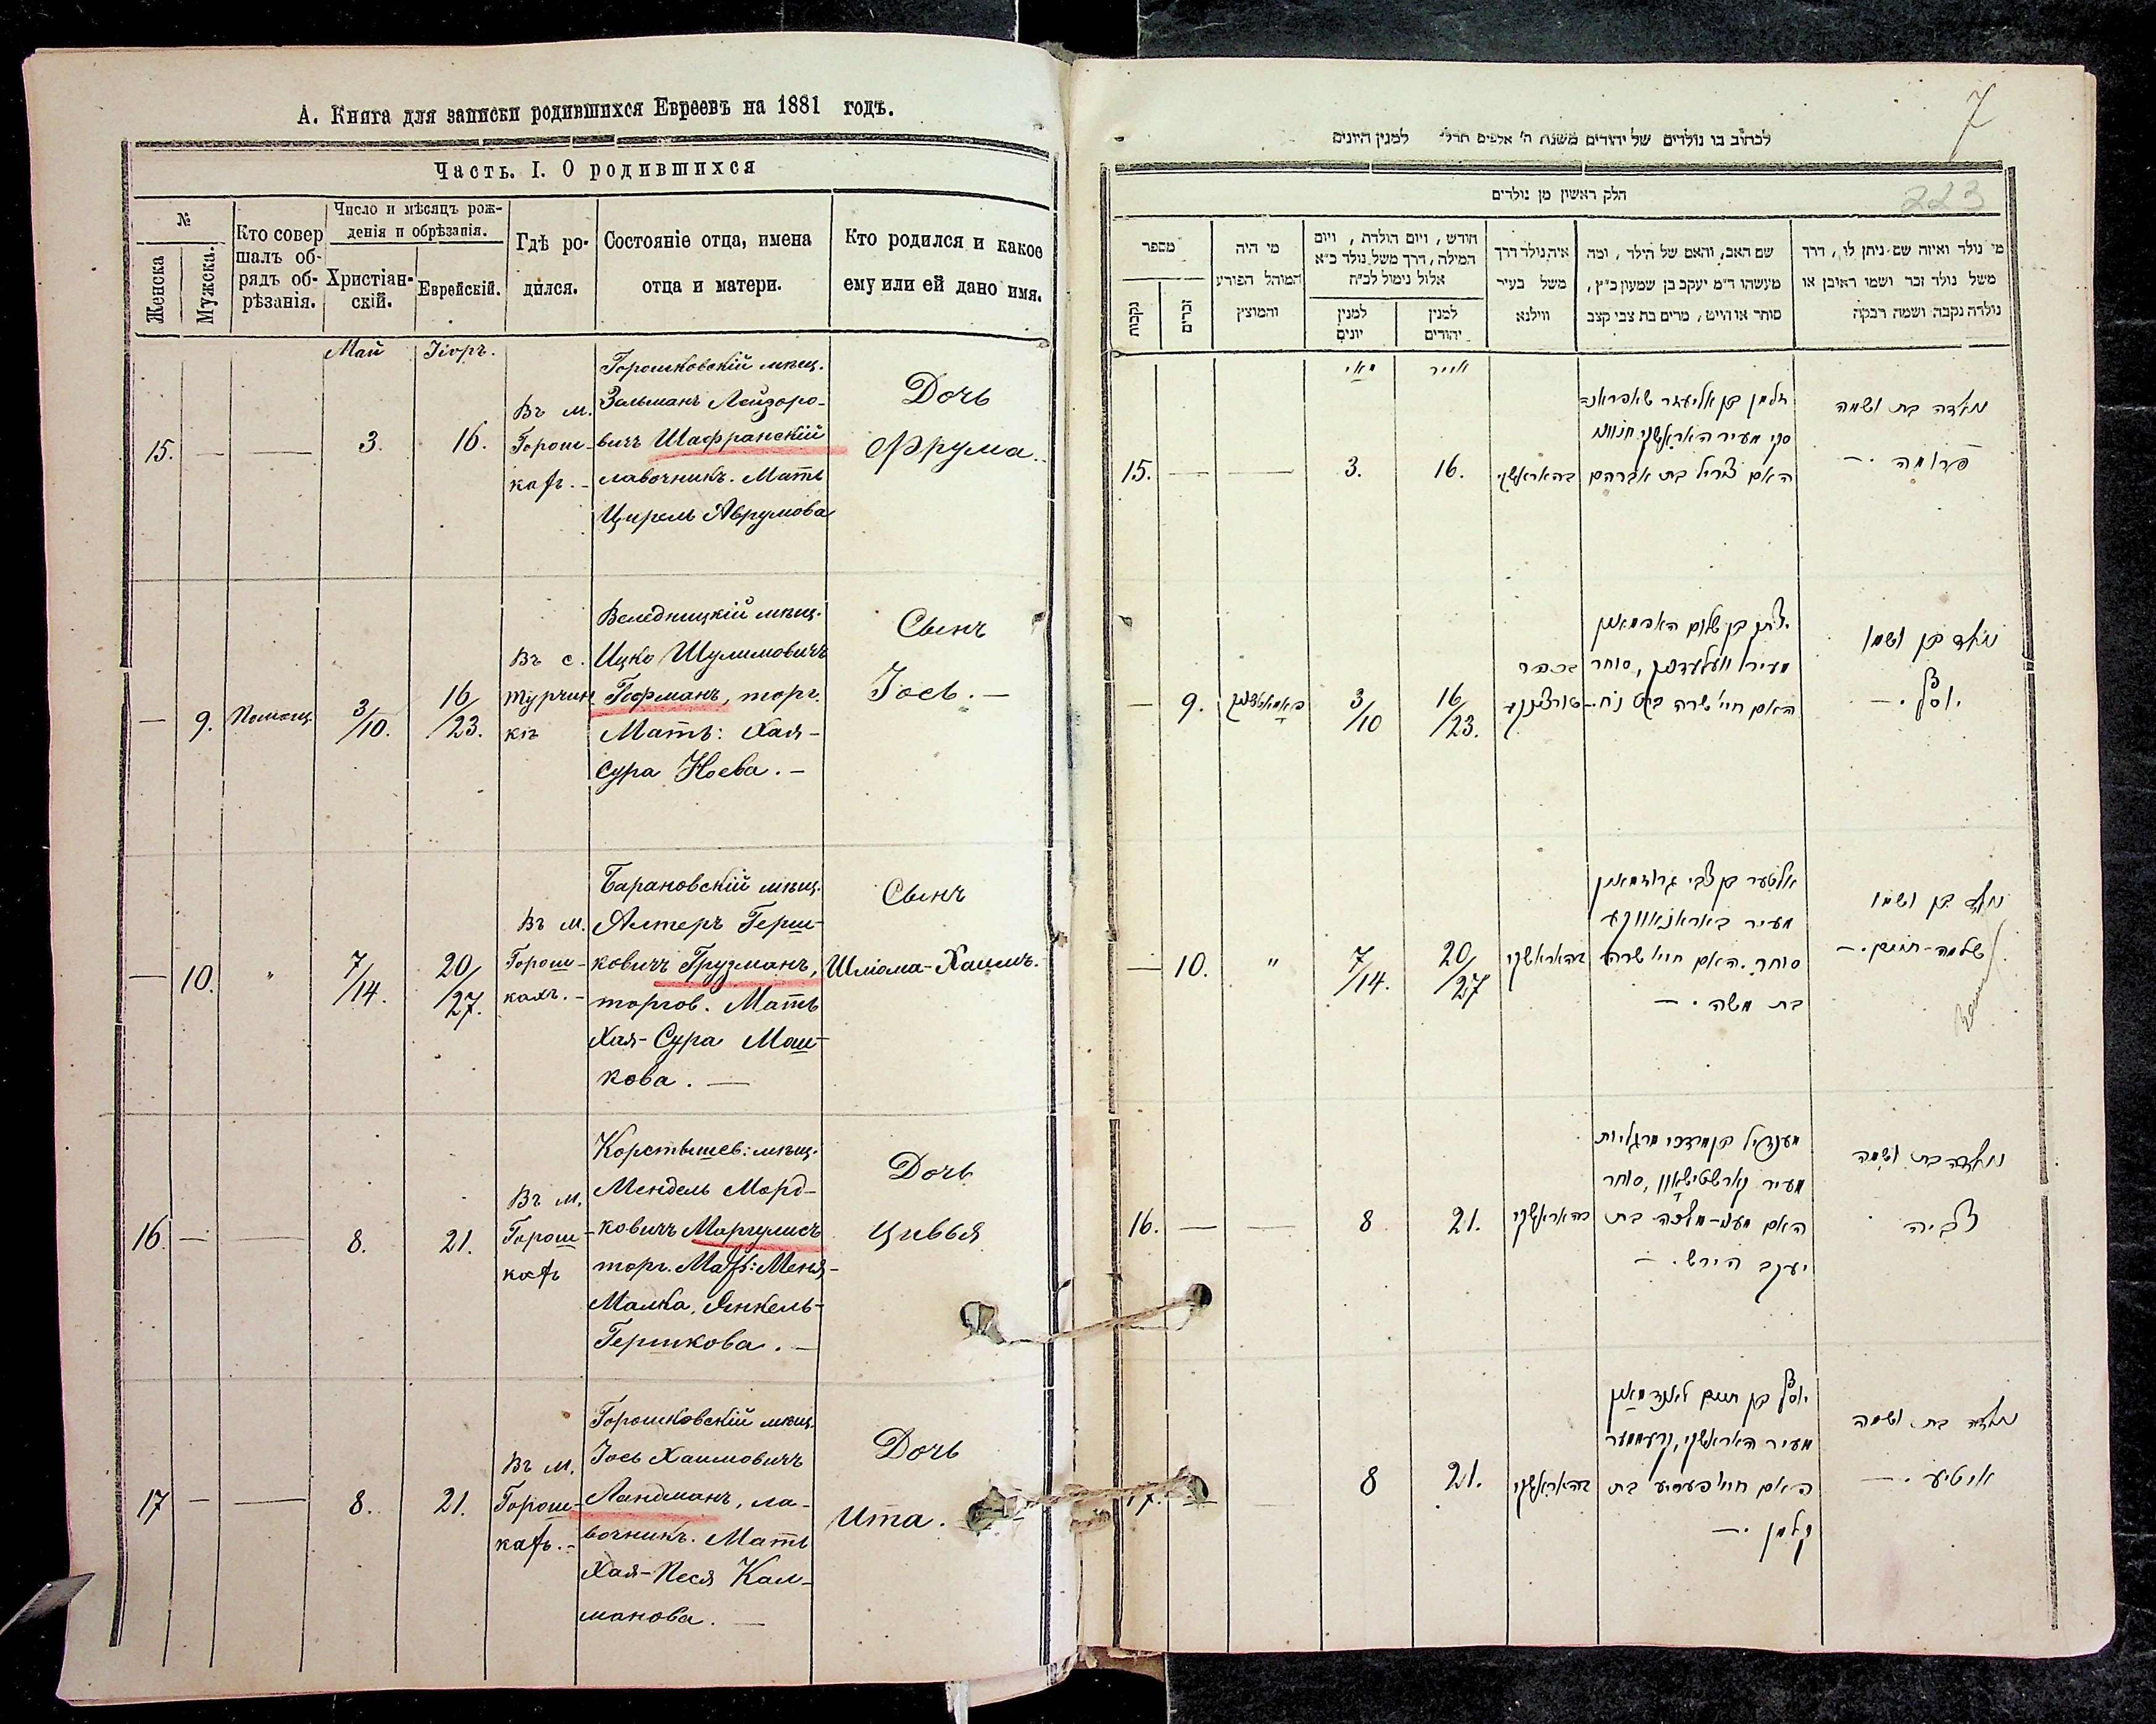 А. Книга для записки родившихся Евреевъ на 1881 годъ.
Часть. I. О родившихся
№
Женска
Мужска.
Кто совер
шалъ об-
рядъ об-
рѣзанія.
Число и мѣсяцъ рож-
денія и обрѣзанія.
Христіан-
скій.
Еврейскій.
Гдѣ ро-
дился.
Состояніе отца, имена
отца и матери.
Кто родился и какое
ему или ей дано имя.
Май
15.
—
—
3.
16.
Въ м.
Горош-
кахъ.-
Горошковскій мѣщ.
Зальманъ Лейзоро-
вичъ Шафранскій
лавочникъ. Мать
Цирель Аврумова
Дочь
Фрума.
—
9.
Помощ.
3/10.
16/23.
Въ с.
Турчин
кѣ
Веледницкій мѣщ.
Ицко Шулимовичъ
Гофманъ, торг.
Мать: Хая-
Сура Ноева.-
Сынъ
Іось.-
—
10.
"
7/14.
20/27.
Въ м.
Горош-
кахъ.-
Барановскій мѣщ.
Алтеръ Герш-
ковичъ Грузманъ,
торгов. Мать
Хая-Сура Мош-
кова.—
Сынъ
Шліома-Хаимъ.
16.
—
—
8.
21.
Въ м.
Горош-
кахъ
Коростышев: мѣщ.
Мендель Морд-
ковичъ Маргулисъ
торг. Мать: Меня-
Малка, Янкель-
Гершкова.—
Дочь
Цивья
17
—
—
8.
21.
Въ м.
Горош-
кахъ.-
Горошковскій мѣщ.
Іось Хаимовичъ
Ландманъ, ла-
вочникъ. Мать
Хая-Песя Кал-
манова.—
Дочь
Ита.
7
לכתוב בו נולדים של יהודים משנת ה' אלפים תרל" למנין היונים
223
חלק ראשון מן נולדים
מי נולד ואיזה שם ניתן לו, דרך
משל נולד זכר ושמו ראובן או
נולדה נקבה ושמה רבקה
שם האב, והאם של הילד, ומה
מעשהו ד"מ יעקב בן שמעון כ"ץ,
סוחר או חייט, מרים בת צבי קצב
איה נולד דרך
משל בעיר
ווילנא
חודש, ויום הולדת, ויום
המילה, דרך משל נולד כ"א
אלול נימול לכ"ח
למנין
יהודים
למנין
יונים
מי היה
המוהל הפורע
והמוצץ
מספר
זכרים
נקבות
אייר
מאי
נולדה בת ושמה
פרומה.-
זלמן בן אליעזר שאפראנ=
סקי מעיר האראשקי חנוני
האם צירל בת אברהם
בהאראשקי
16.
3.
—
—
15.
נולד בן ושמו
יוסף.-
יצחק בן שלום
מעיר וועלעדניק, סוחר
האם חי' שרה בת נח.-
בכפר
16/23.
3/10
9.
—
נולד בן ושמו
שלמה-חיים.-
אלטער בן צבי גרוזמאן
מעיר באראנאווקע
סוחר. האם חי' שרה
בת משה.-
בהאראשקי
20/27
7/14.
"
10.
—
נולדה בת ושמה
צביה
מענדיל בן מרדכי מרגליות
מעיר קארשטישאוו, סוחר
האם מעני-מלכה בת
יעקב הירש.-
בהאראשקי
21.
8
—
—
16.
נולדה בת ושמה
איטע.-
יוסף בן חיים לאנדמאן
מעיר האראשקי, קרעמער
האם חי' פעסיע בת
קלמן.-
בהאראשקי
21.
8
—
17.